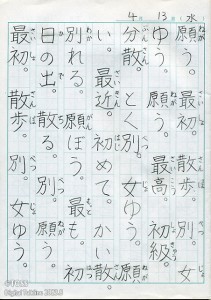 4月13日(水)
願う。最初。散歩。別。女
ゆう。願う。最高。初級。
分散。とく別。女ゆう。願
い。最近。初めて。かい散。
別れる。願ぼう。最も。初
日の出。散る。別。願う。
最初。散歩。別。女ゆう。